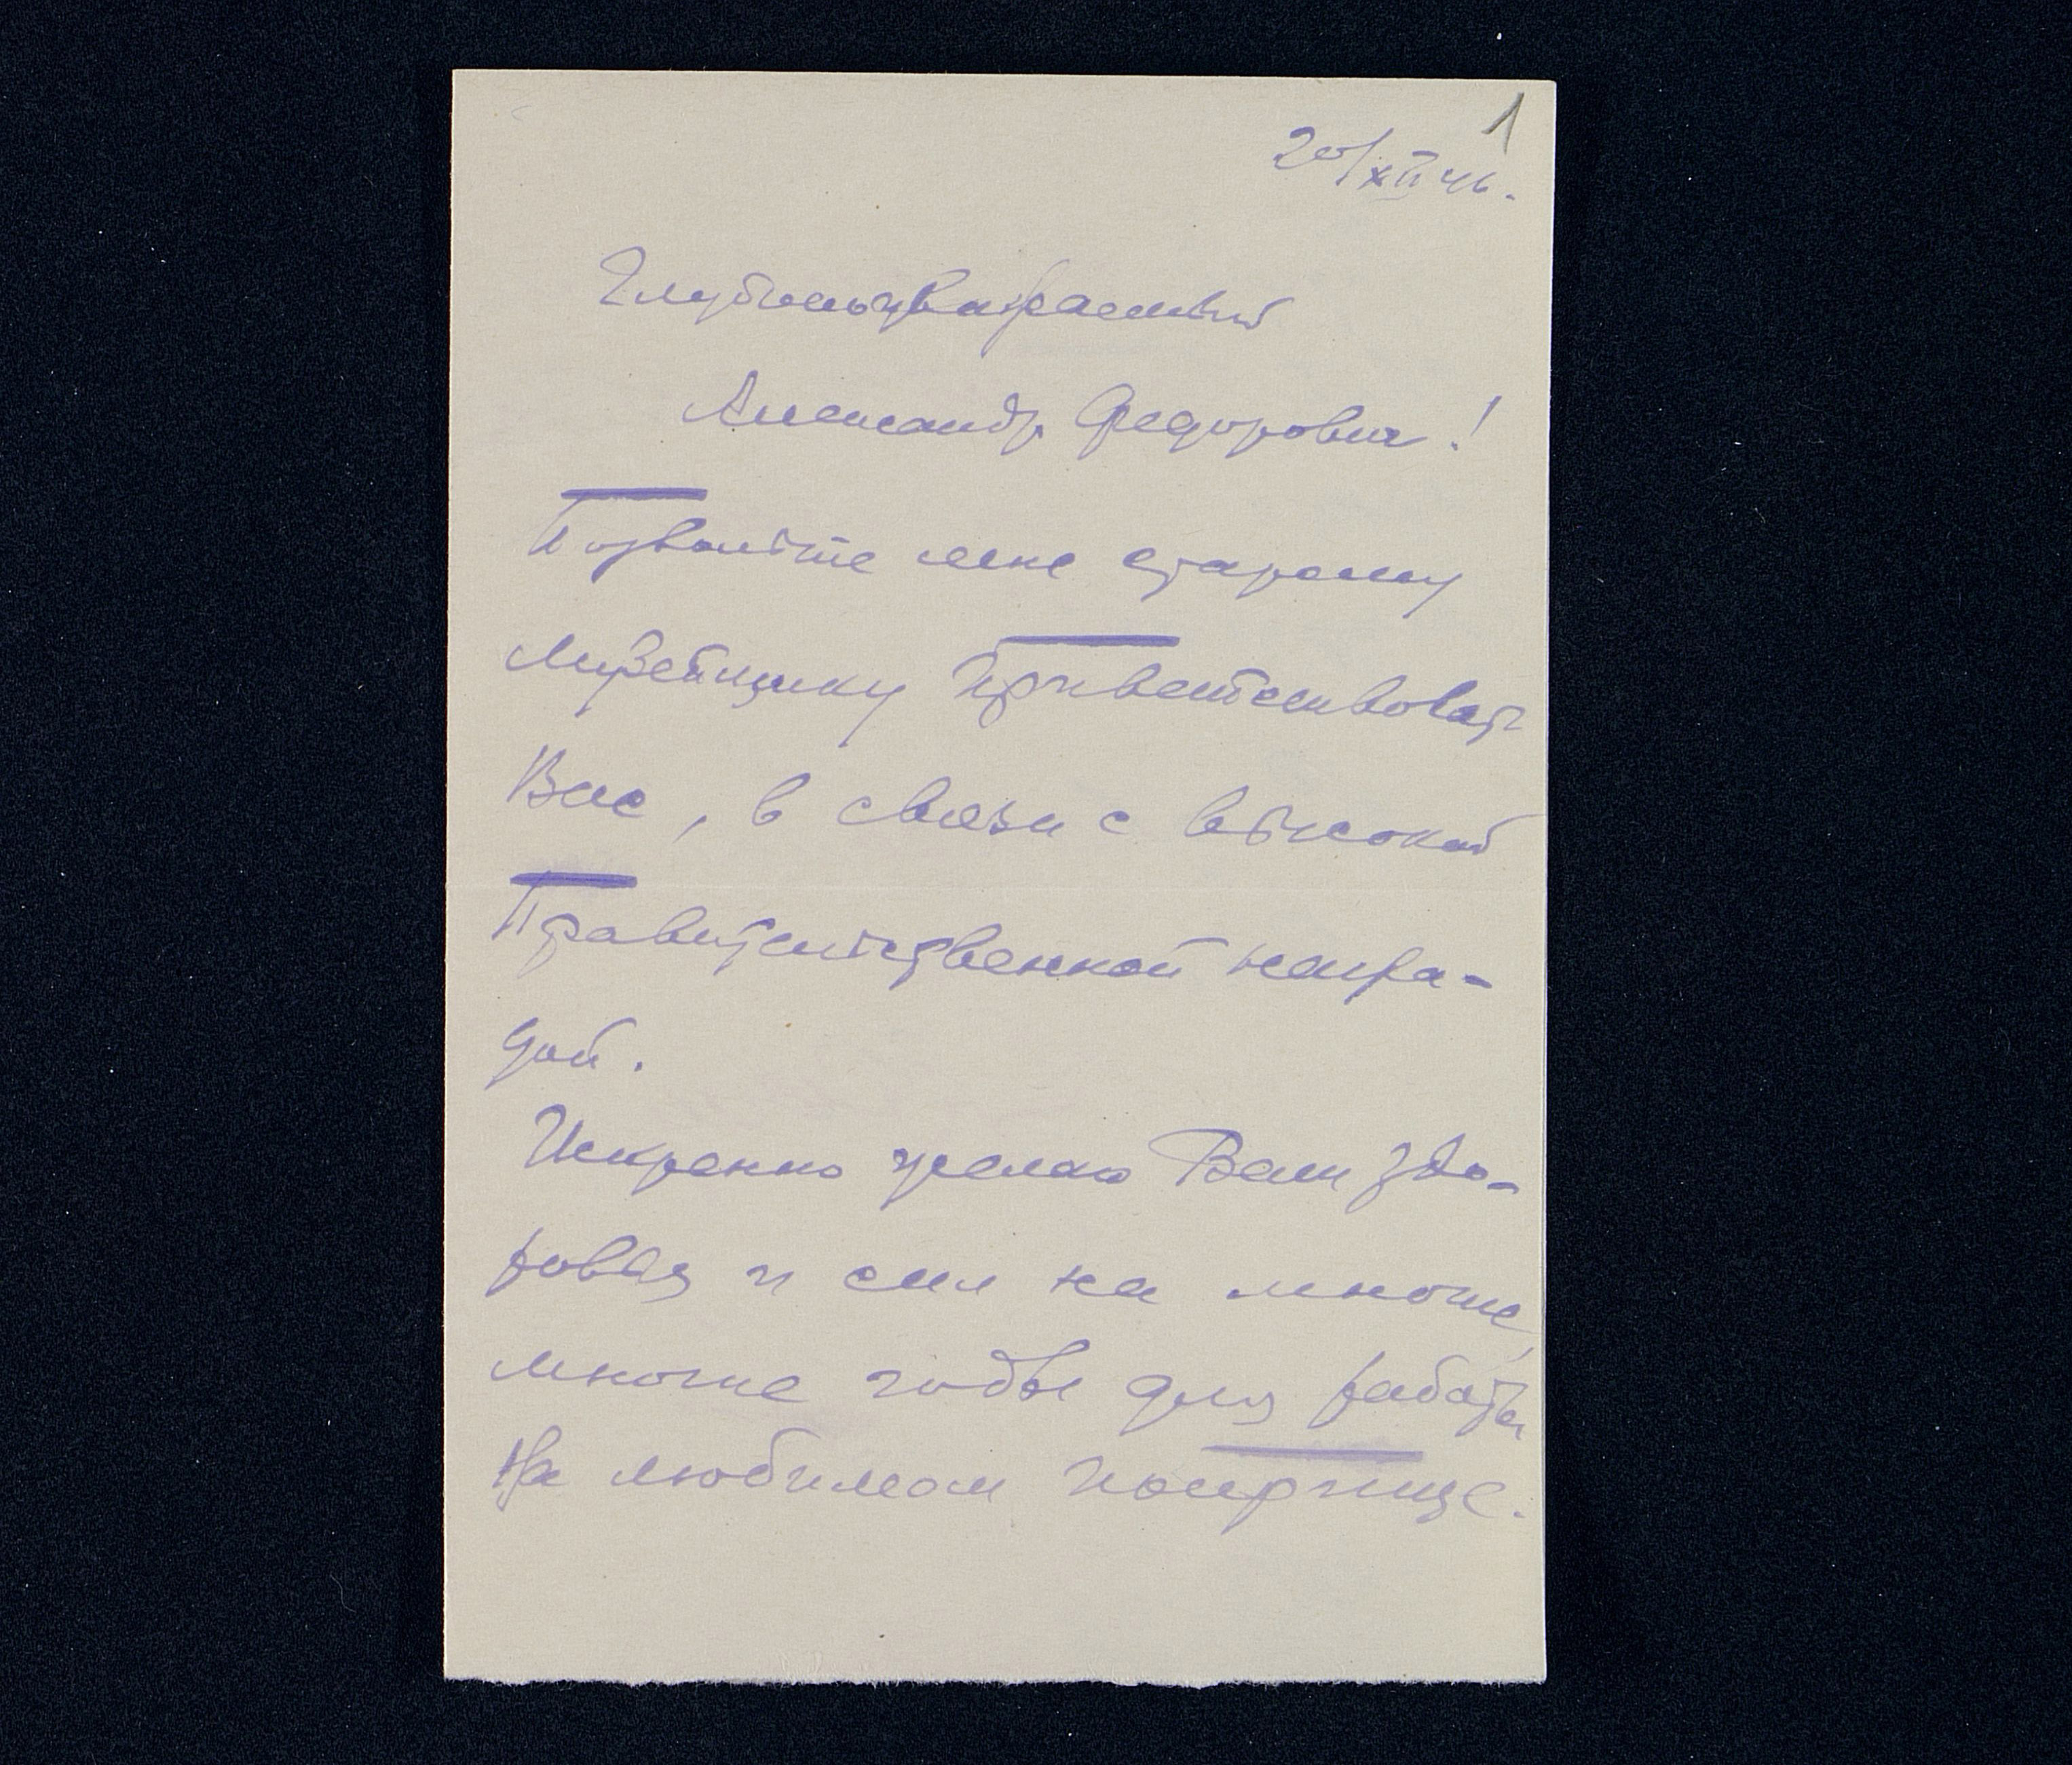 1
20/XII 46.
Глубокоуважаемый
Александр Федорович!
Позвольте мне старому
музейщику приветствовать
Вас, в связи с высокой
Правительственной награ-
дой.
Искренно желаю Вам здо-
ровья и сил на многие,
многие годы для работы
на любимом поприще.